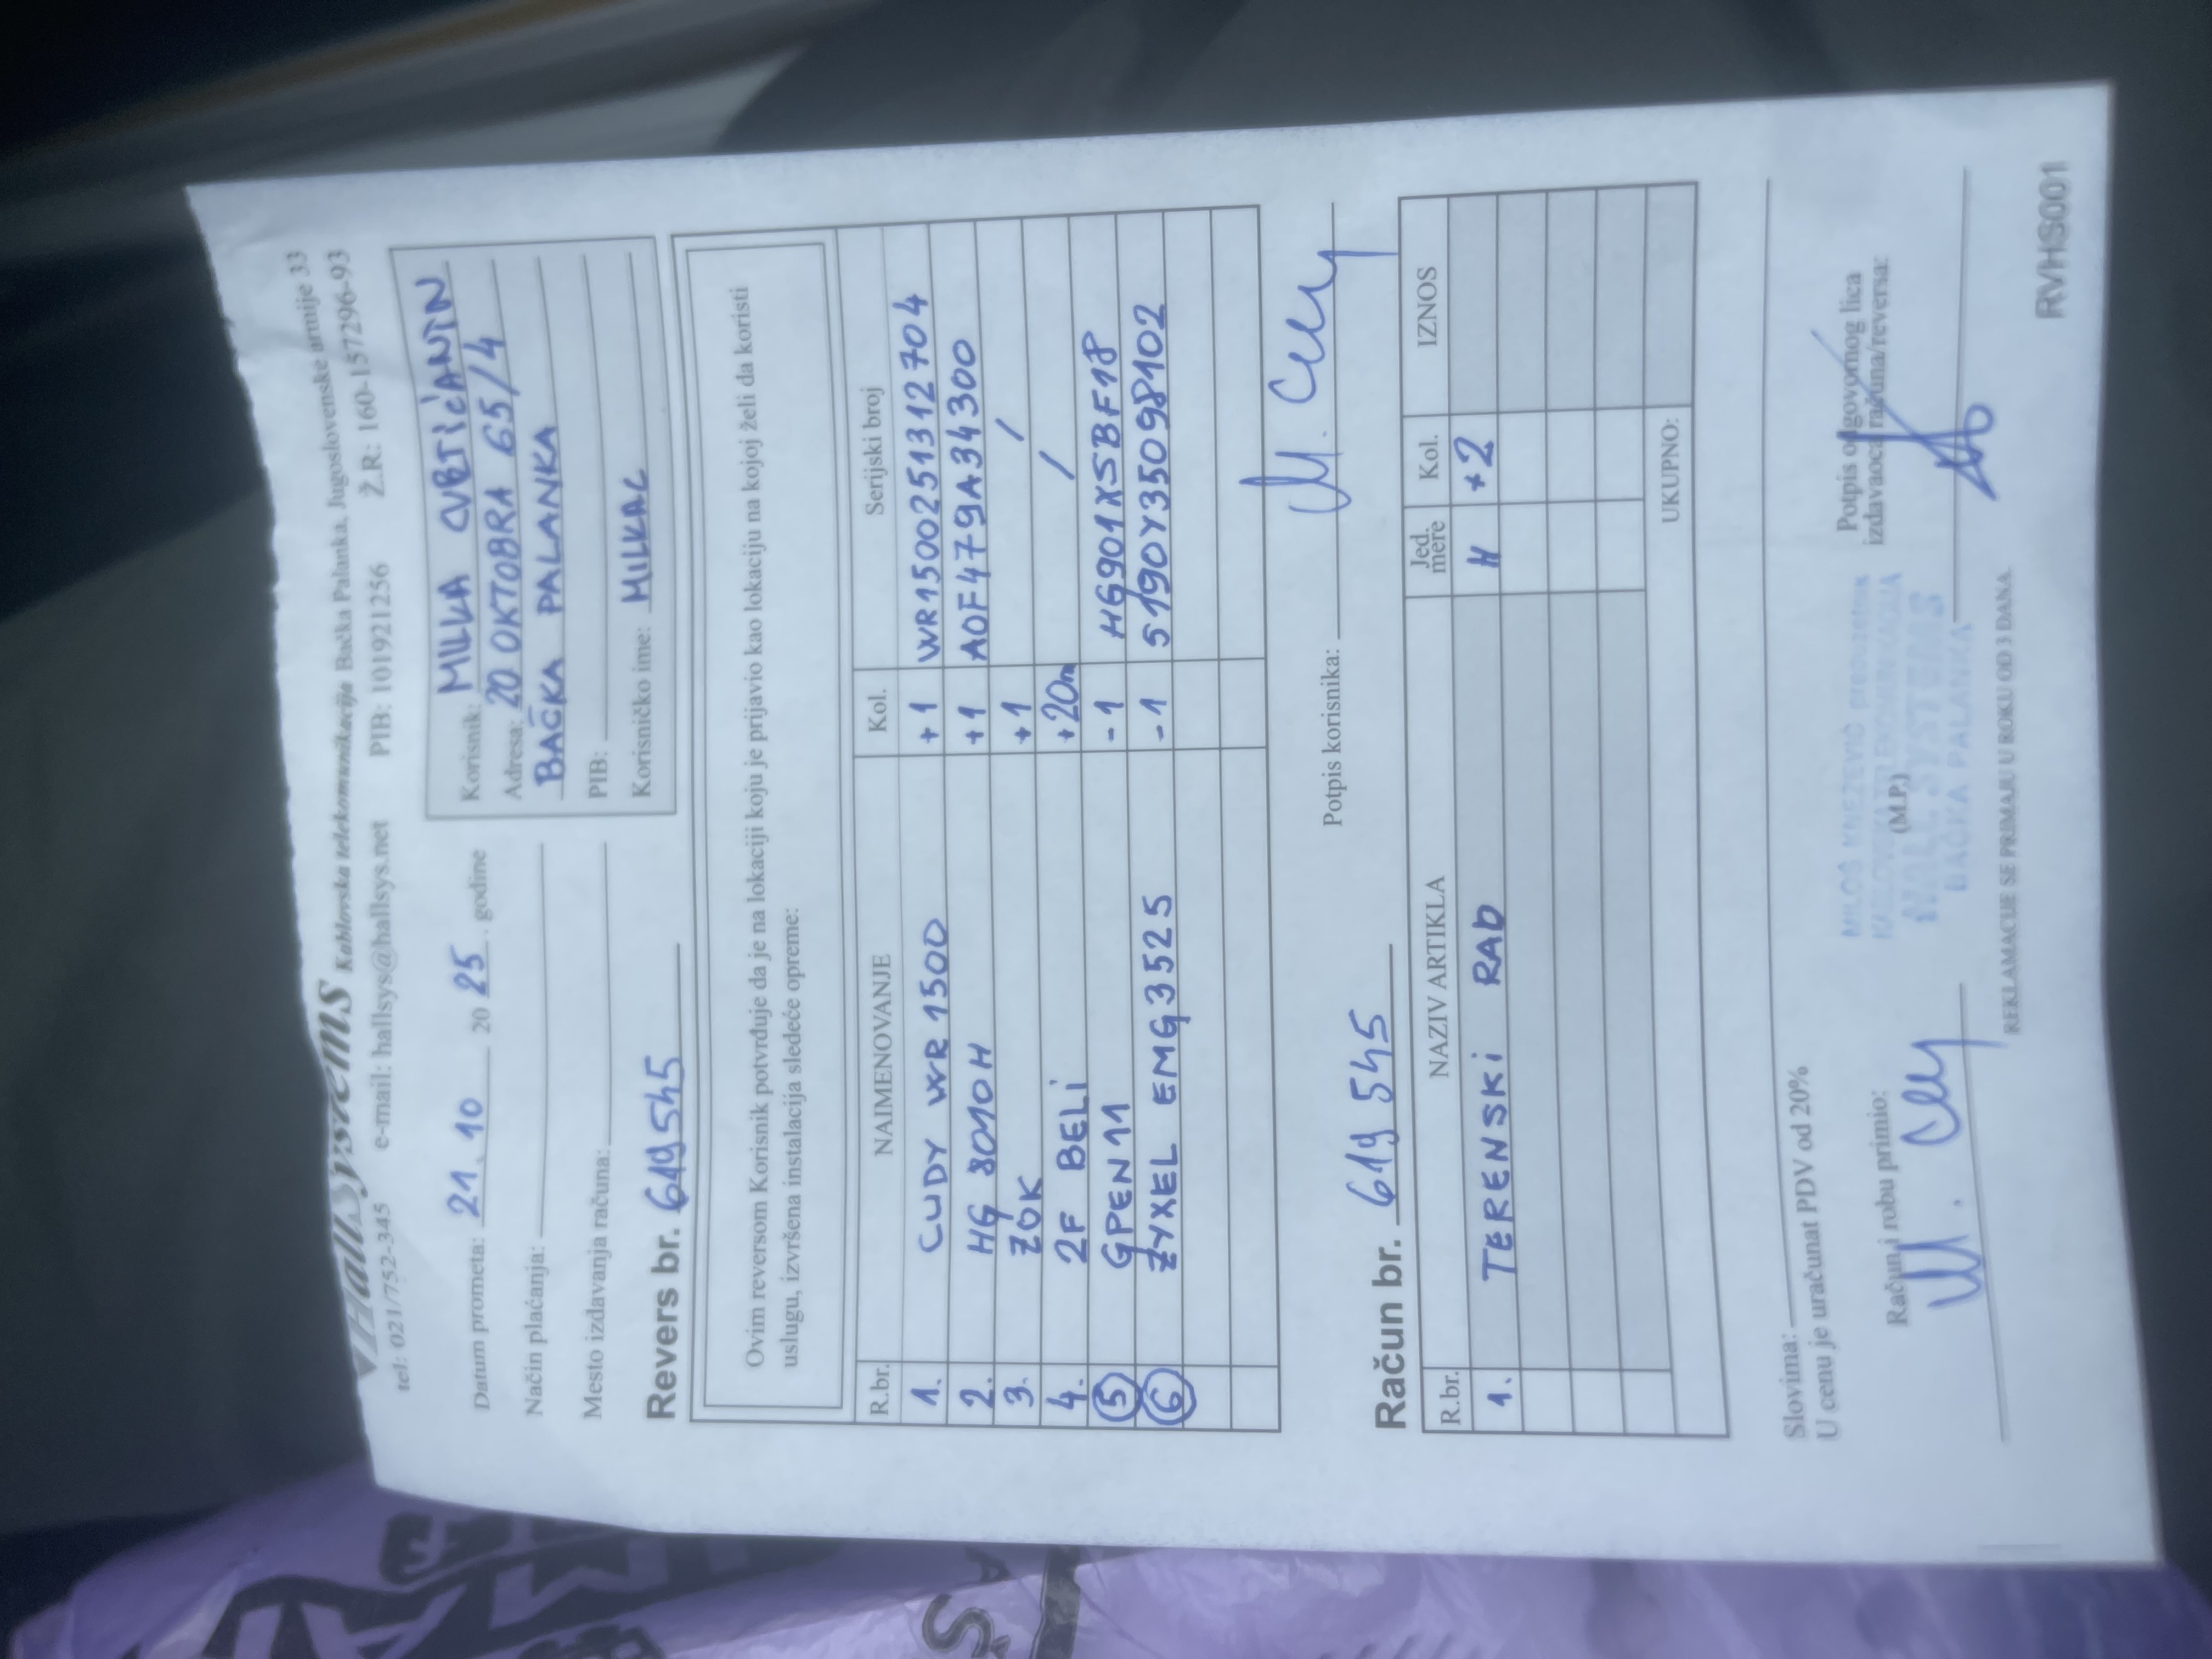 HallSystems Kablovska telekomunikacija Bačka Palanka, Jugoslovenske armije 33
tel: 021/752-345 e-mail: hallsys@hallsys.net PIB: 101921256 Ž.R: 160-157296-93
Datum prometa: 21.10 20 25. godine
Način plaćanja:
Mesto izdavanja računa:
Korisnik: MILKA CVETIĆANIN
Adresa: 20 OKTOBRA 65/4
BAČKA PALANKA
PIB:
Korisničko ime: MILKAC
Revers br. 619545
Ovim reversom Korisnik potvrđuje da je na lokaciji koju je prijavio kao lokaciju na kojoj želi da koristi
uslugu, izvršena instalacija sledeće opreme:
R.br. NAIMENOVANJE Kol. Serijski broj
1. CUDY WR 1500 +1 WR1500251312704
2. HG 8010H +1 A0F479A34300
3. ZOK +1 /
4. 2F BELI +20m /
5 GPEN11 -1 HG901XSBF18
6 ZYXEL EMG3525 -1 S190Y35098102
Potpis korisnika:
Račun br. 619545
R.br. NAZIV ARTIKLA Jed. mere Kol. IZNOS
1. TERENSKI RAD H +2
UKUPNO:
Slovima:
U cenu je uračunat PDV od 20%
Račun i robu primio:
(M.P.)
Potpis odgovornog lica
izdavaoca računa/reversa:
MILOŠ KNEŽEVIĆ preduzetnik
KABLOVSKA TELEKOMUNIKACIJA
HALLSYSTEMS
BAČKA PALANKA
REKLAMACIJE SE PRIMAJU U ROKU OD 3 DANA.
RVHS001